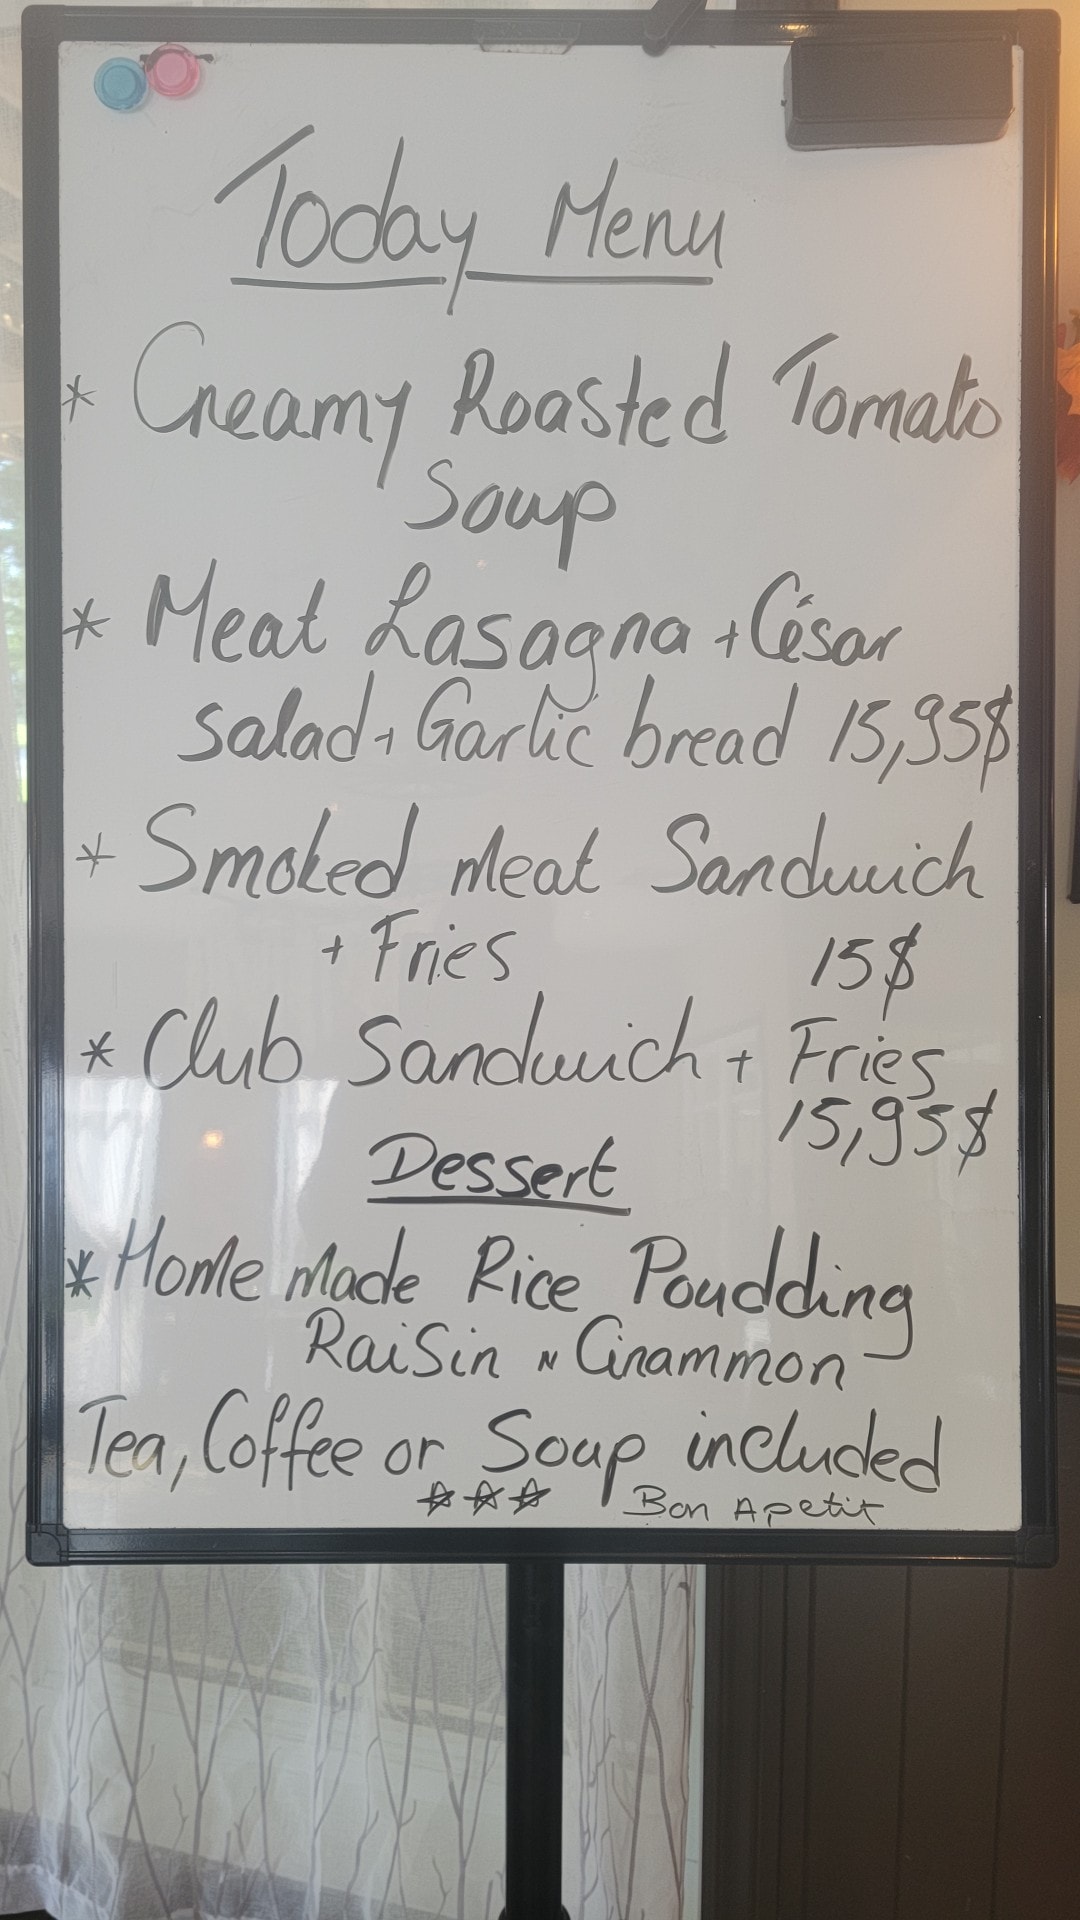 Today Menu
* Creamy Roasted Tomato
Soup
* Meat Lasagna + César
salad + Garlic bread 15,95$
* Smoked meat Sandwich
+ Fries 15$
* Club Sandwich + Fries
15,95$
Dessert
* Home made Rice Poudding
Raisin N Cinammon
Tea, Coffee or Soup included
☆☆☆ Bon Apetit